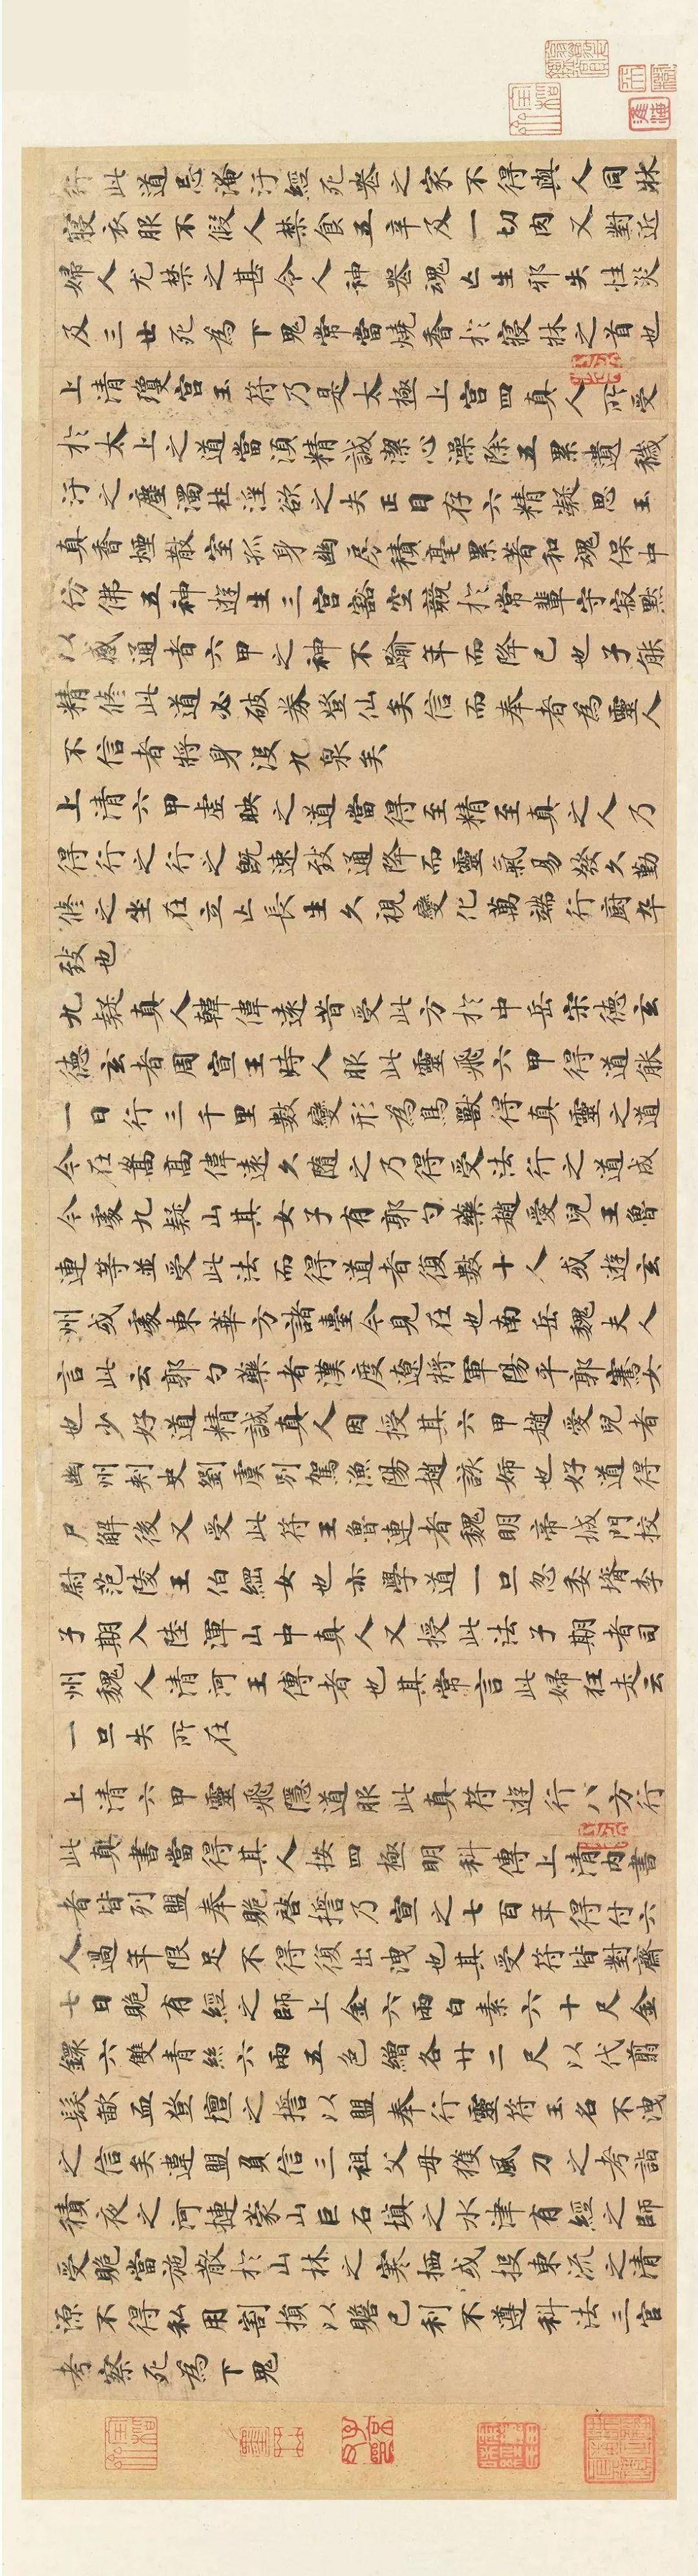 行此道忌淹汙經死喪之家不得與人同牀
寢衣服不假人禁食五辛及一切肉又對近
婦人尤禁之甚令人神喪魂亡生邪失性災
及三世死為下鬼常當燒香於寢牀之首也
上清瓊宮玉符乃是太極上宮四真人所受
於太上之道當須精誠潔心澡除五累遺穢
汙之塵濁杜淫欲之失正目存六精凝思玉
真香煙散室孤身幽房積毫累著和魂保中
仿佛五神遊生三宮豁空競於常輩守寂默
以感通者六甲之神不踰年而降己也子能
精修此道必破券登仙矣信而奉者為靈人
不信者將身沒九泉矣
上清六甲虛映之道當得至精至真之人乃
得行之行之既速致通降而靈氣易發久勤
修之坐在立亡長生久視變化萬端行廚卒
致也
九疑真人韓偉遠昔受此方於中岳宋德玄
德玄者周宣王時人服此靈飛六甲得道能
一日行三千里數變形為鳥獸得真靈之道
今在嵩高偉遠久隨之乃得受法行之道成
今處九疑山其女子有郭勺藥趙愛兒王魯
連等並受此法而得道者復數十人或遊玄
州或處東華方諸臺今見在也南岳魏夫人
言此云郭勺藥者漢度遼將軍陽平郭騫女
也少好道精誠真人因授其六甲趙愛兒者
幽州刺史劉虞別駕漁陽趙該婦也好道得
尸解後又受此符王魯連者魏明帝城門校
尉范陵王伯綱女也亦學道一旦忽委壻李
子期入陸渾山中真人又授此法子期者司
州魏人清河王傳者也其常言此婦狂走云
一旦失所在
上清六甲靈飛隱道服此真符遊行八方行
此真書當得其人按四極明科傳上清內書
者皆列盟奉贶啓擔乃宣之七百年得付六
人過年限足不得復出洩也其受符皆對齋
七日贶有經之師上金六兩白素六十尺金
鐶六雙青絲六兩五色繒各廿二尺以代翦
髮歃血登壇之擔以盟奉行靈符玉名不洩
之信矣違盟負信三祖父母獲風刀之考詣
積夜之河摙蒙山巨石填之水津有經之師
受贶當施散於山林之寒栖或投東流之清
源不得私用割損以贍己利不遵科法三官
考察死為下鬼